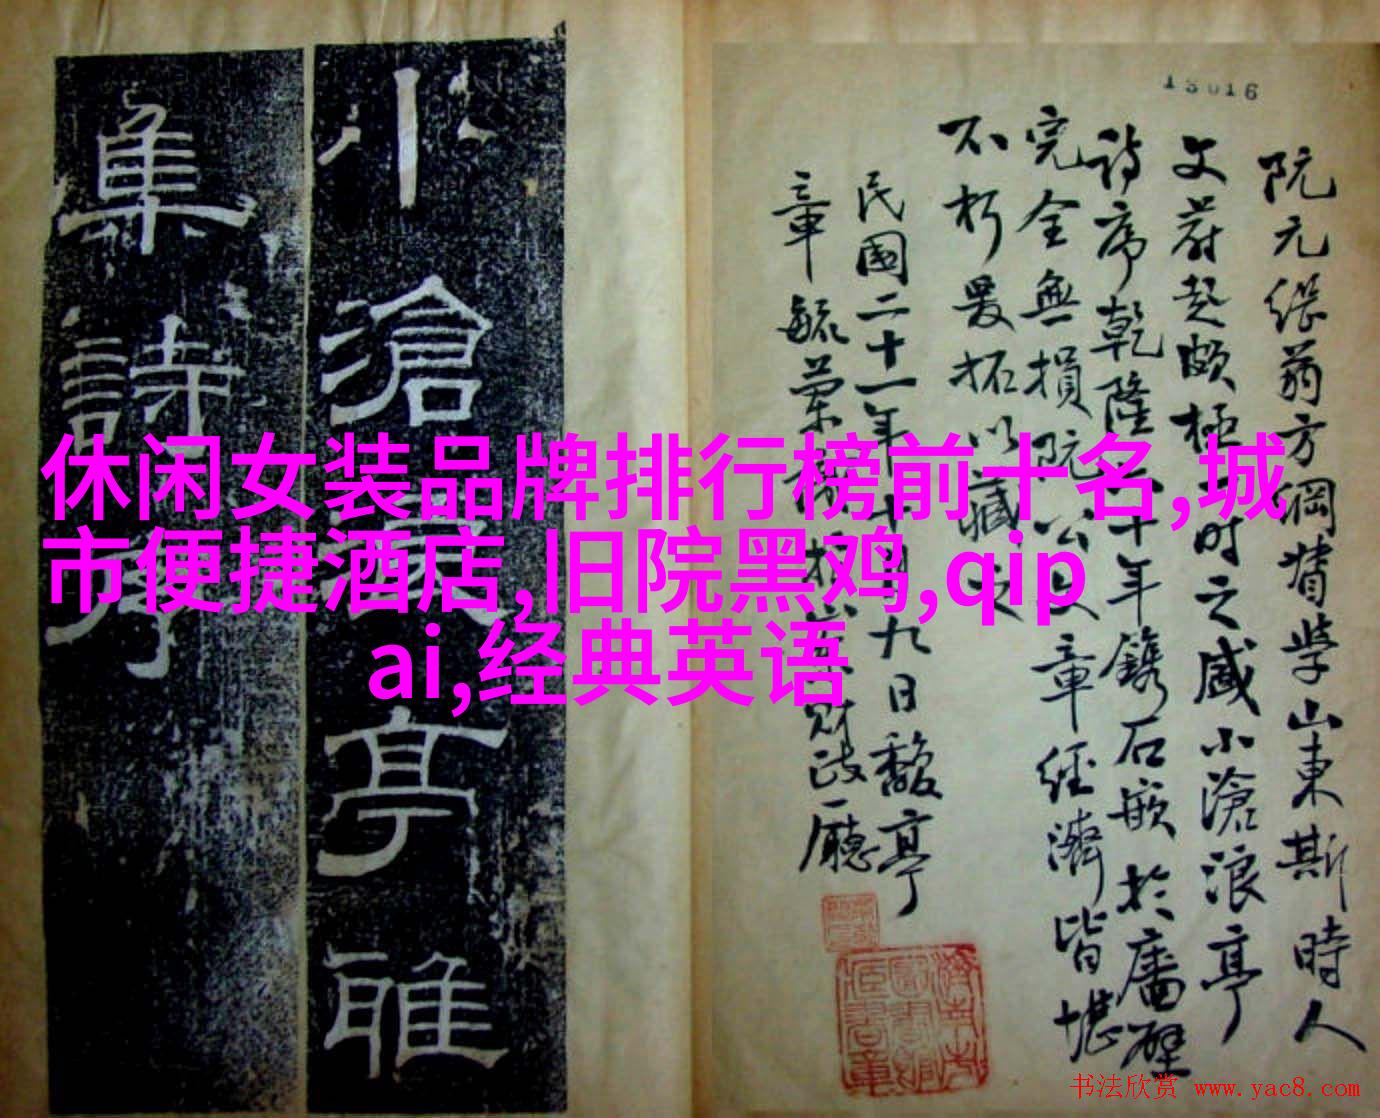 小滄浪亭雅
集詩序
13016
阮元繼翁方綱督學山東斯時人
文蔚起頗極一時之盛小滄浪亭
詩序乾隆六十年鐫石嵌於廡壁
完全無損阮公文章經濟皆堪
不朽爰拓以藏之
民國二十一年 月九日馥亭
章毓蘭 財政廳
休闲女装品牌排行榜前十名,城
市便捷酒店,旧院黑鸡,qip
ai,经典英语
书法欣赏 www.yac8.com